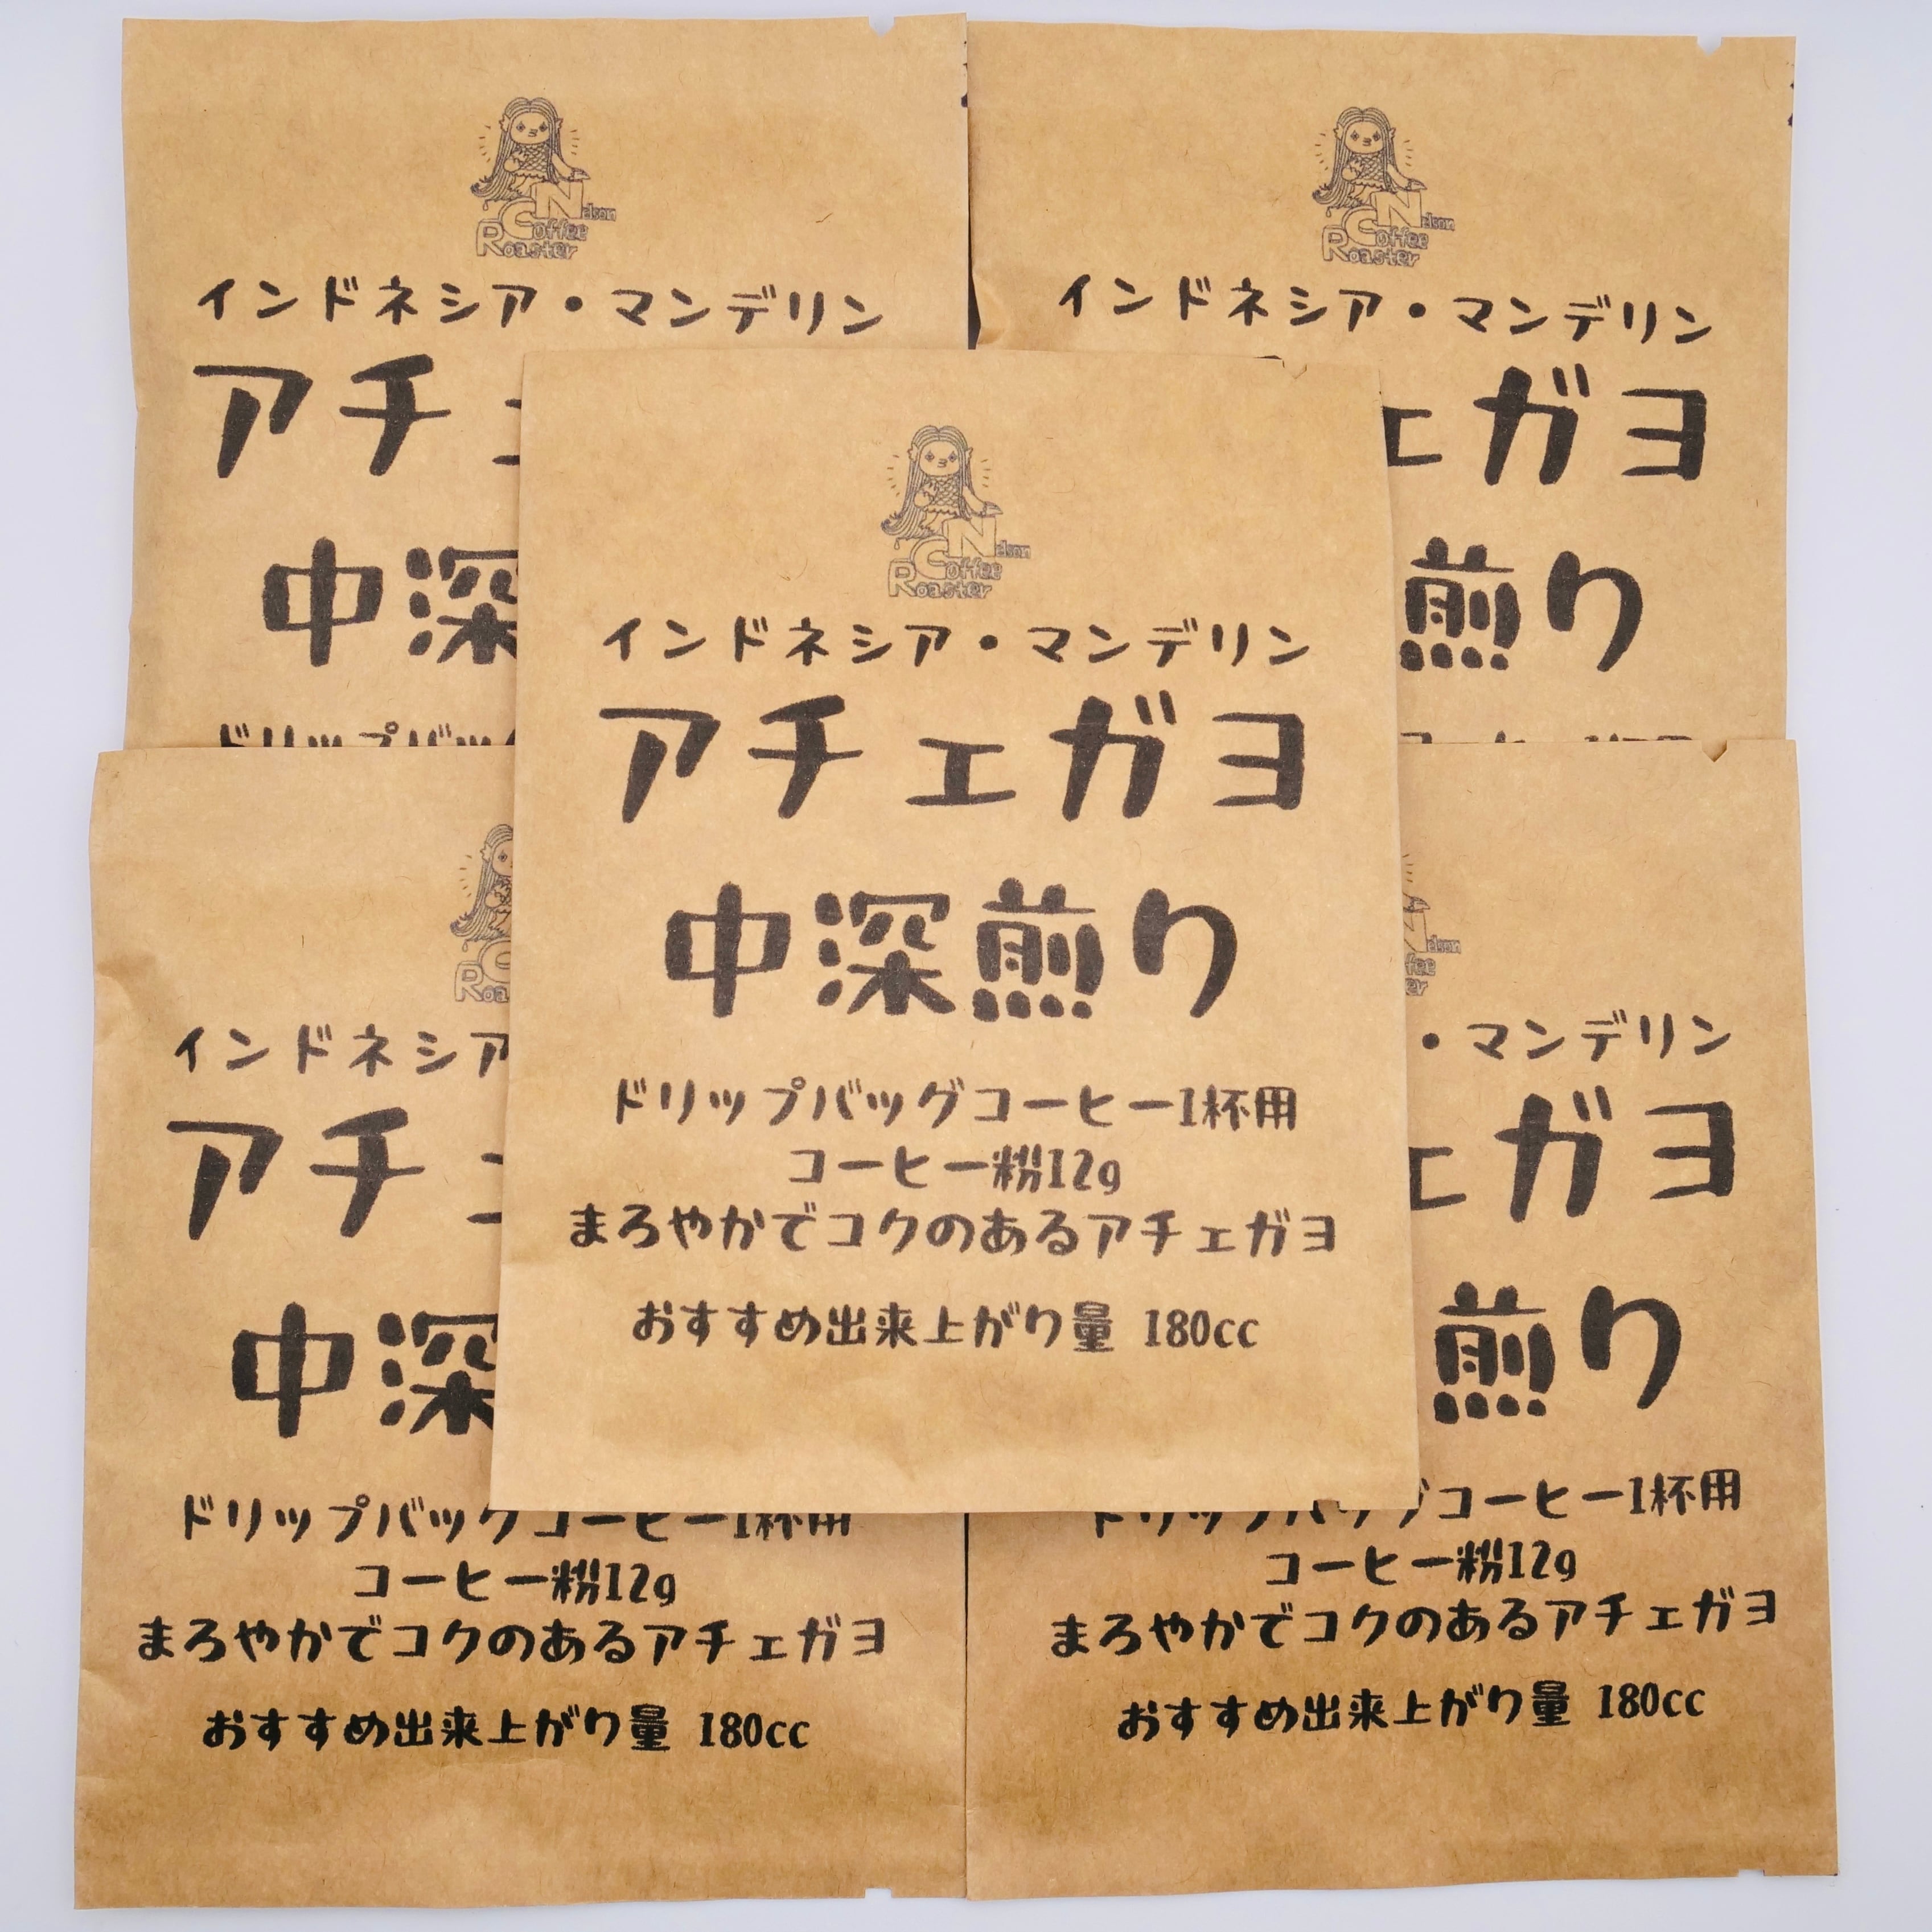 Nelson
Coffee
Roaster
インドネシア・マンデリン
アチ
中深
ドリップバッ
Nelson
Coffee
Roaster
インドネシア・マンデリン
ェガヨ
煎り
Nelson
Coffee
Roaster
インドネシア・マンデリン
アチェガヨ
中深煎り
ドリップバッグコーヒー1杯用
コーヒー粉12g
まろやかでコクのあるアチェガヨ
おすすめ出来上がり量 180cc
インドネシア
アチ
中深
ドリップバッグコーヒー1杯用
コーヒー粉12g
まろやかでコクのあるアチェガヨ
おすすめ出来上がり量 180cc
・マンデリン
ェガヨ
煎り
ドリップバッグコーヒー1杯用
コーヒー粉12g
まろやかでコクのあるアチェガヨ
おすすめ出来上がり量 180cc